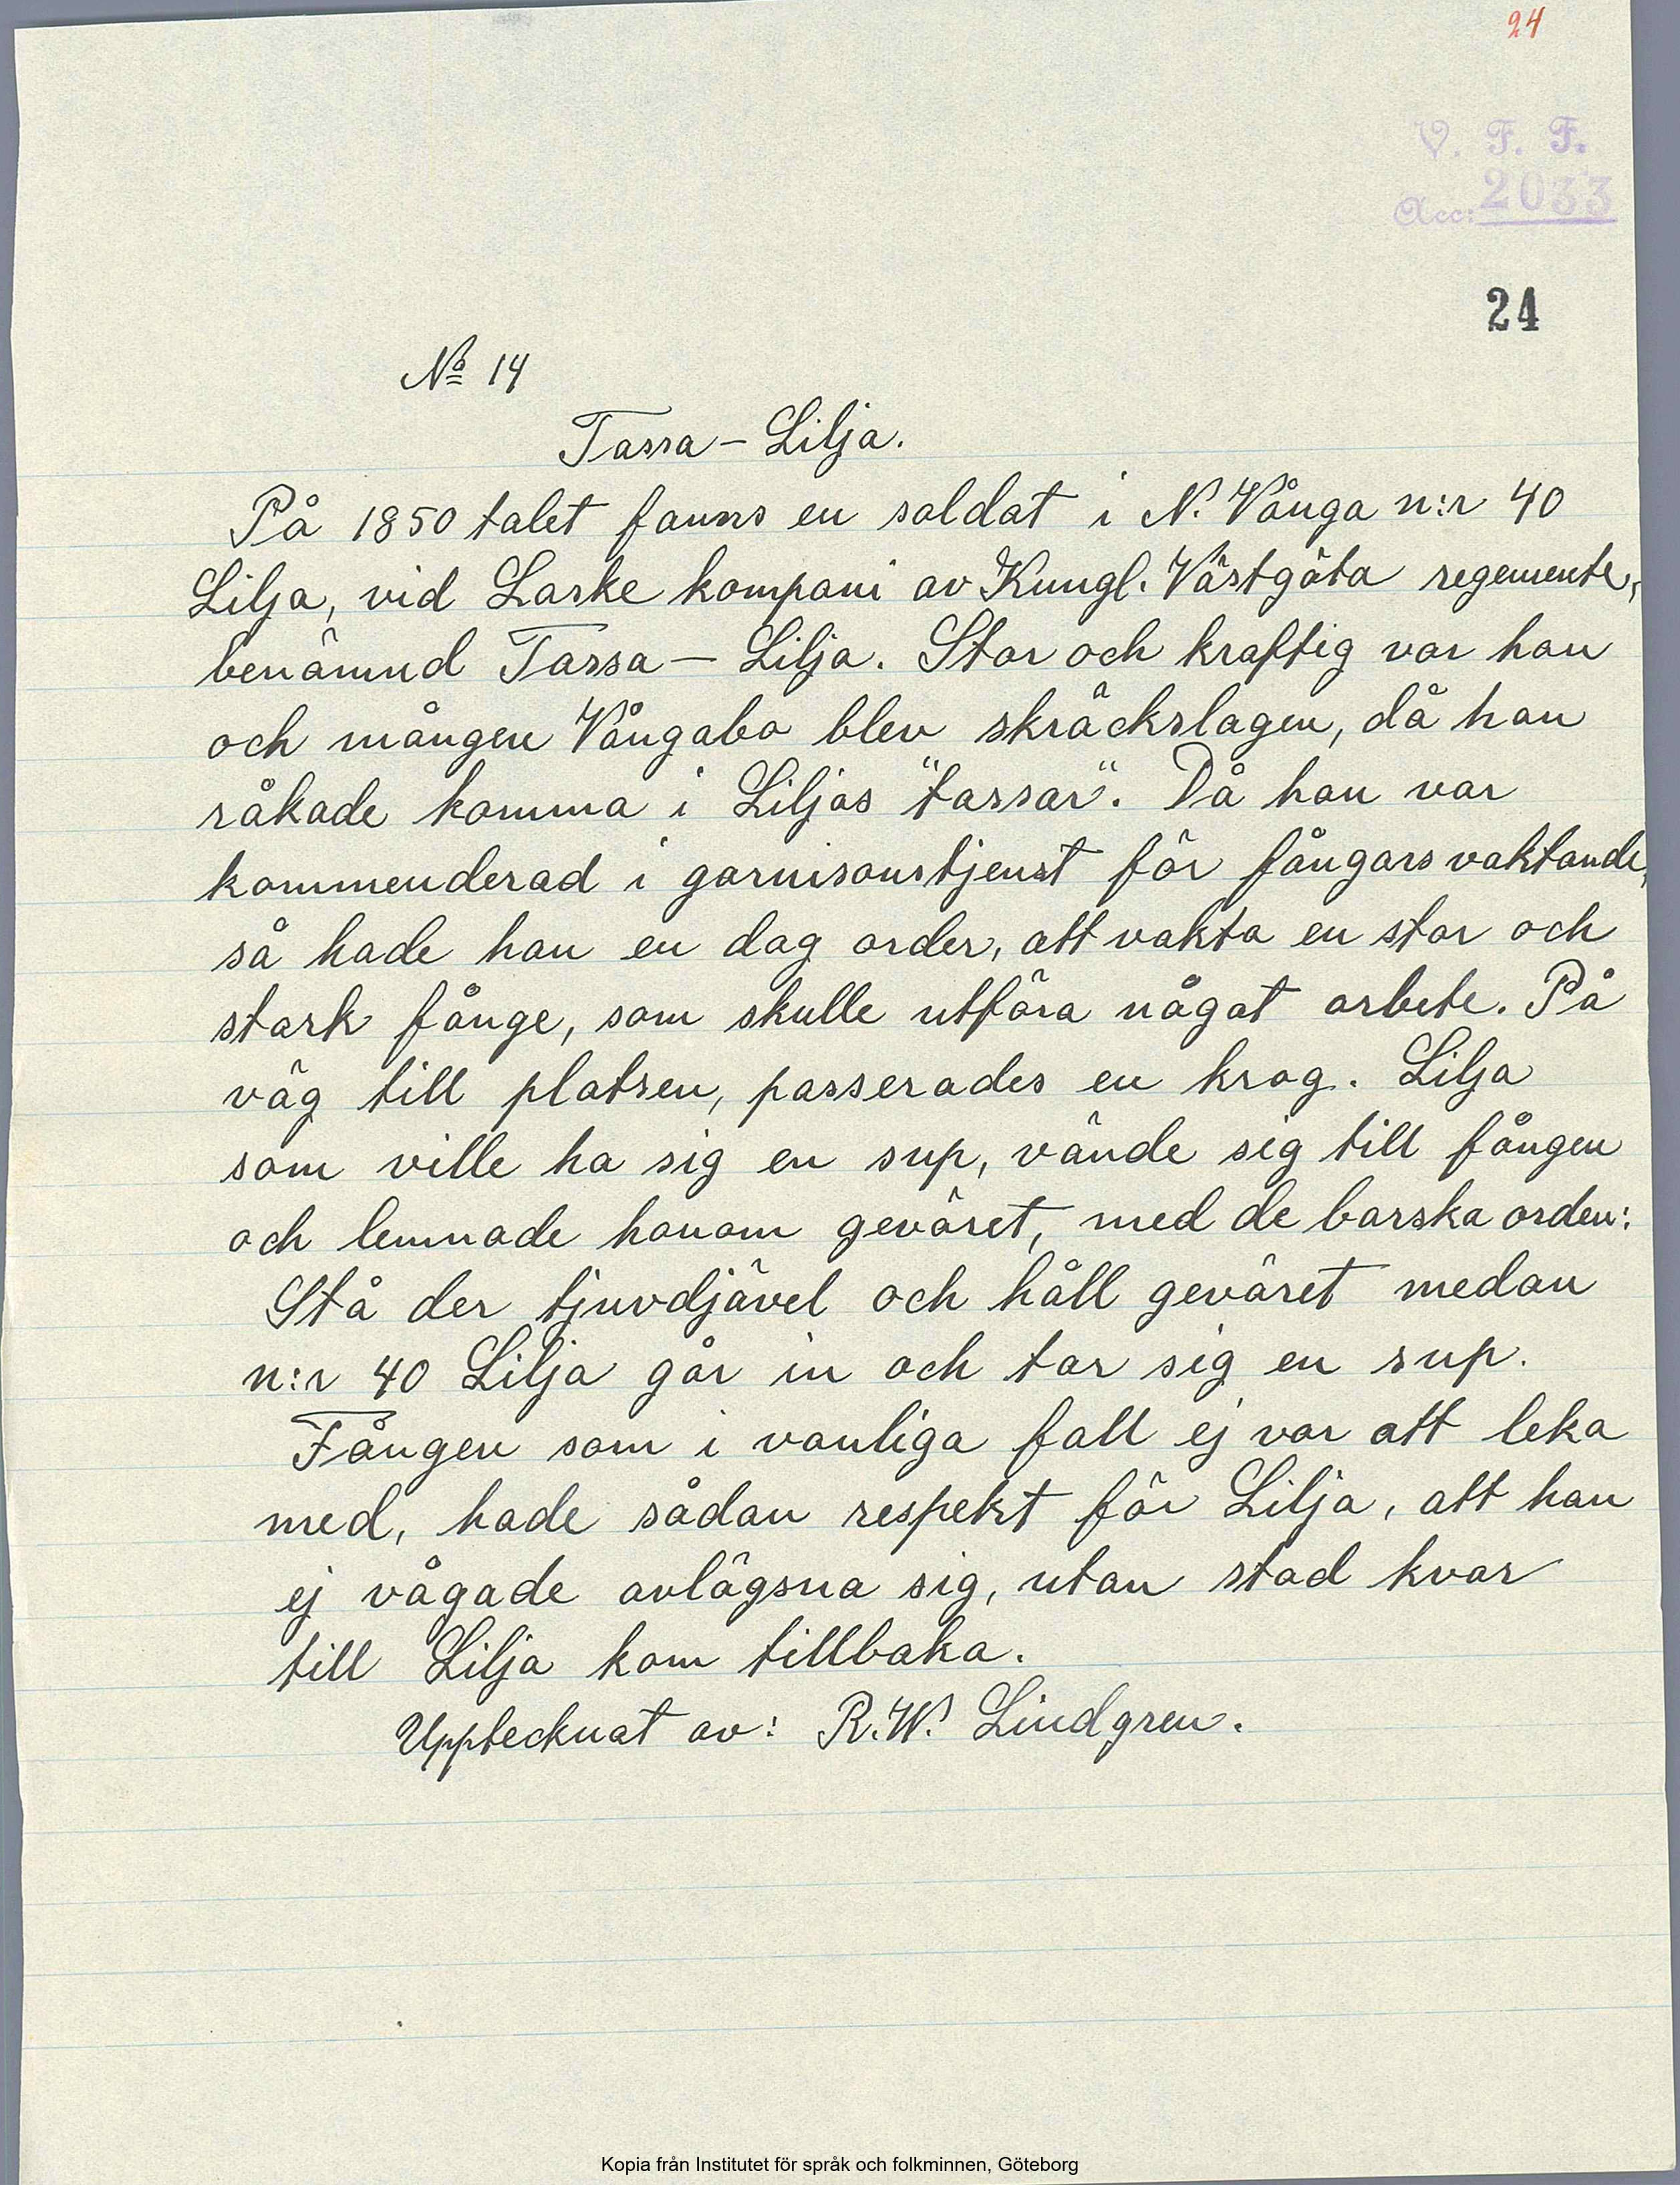 24
V. F. F.
Acc: 2033
24
No 14
Tassa – Lilja.
På 1850 talet fanns en soldat i N. Vånga n:r 40
Lilja, vid Laske kompani av Kungl. Västgöta regemente,
benämnd Tassa – Lilja. Stor och kraftig var han
och mången Vångabo blev skräckslagen, då han
råkade komma i Liljas "tassar". Då han var
kommenderad i garnisonstjenst för fångars vaktande,
så hade han en dag order, att vakta en stor och
stark fånge, som skulle utföra något arbete. På
väg till platsen, passerades en krog. Lilja
som ville ha sig en sup, vände sig till fången
och lemnade honom geväret, med de barska orden:
Stå der tjuvdjävel och håll geväret medan
n:r 40 Lilja går in och tar sig en sup.
Fången som i vanliga fall ej var att leka
med, hade sådan respekt för Lilja, att han
ej vågade avlägsna sig, utan stod kvar
till Lilja kom tillbaka.
Upptecknat av: R.W. Lindgren.
Kopia från Institutet för språk och folkminnen, Göteborg